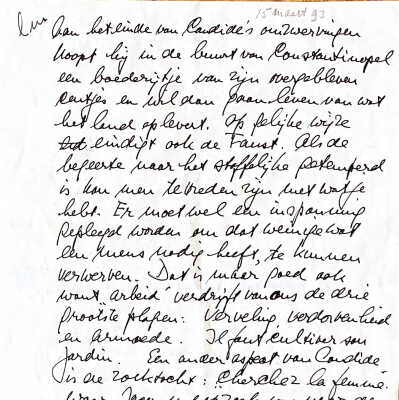 15 maart 93
Aan het einde van Candide's omzwervingen
koopt hij in de buurt van Constantinopel
een boederijtje van zijn overgebleven
centjes en wil dan gaan leven van wat
het land oplevert. Op gelijke wijze
eindigt ook de Faust. Als de
begeerte naar het stoffelijke getemperd
is kan men tevreden zijn met wat je
hebt. Er moet wel een inspanning
gepleegd worden om dat weinige wat
een mens nodig heeft, te kunnen
verwerven. Dat is maar goed ook
want "arbeid" verdrijft van ons de drie
grootste plagen: Verveling, verdorvenheid
en armoede. Il faut cultiver son
jardin. Een ander aspect van Candide
is de zoektocht: Cherchez la femme.